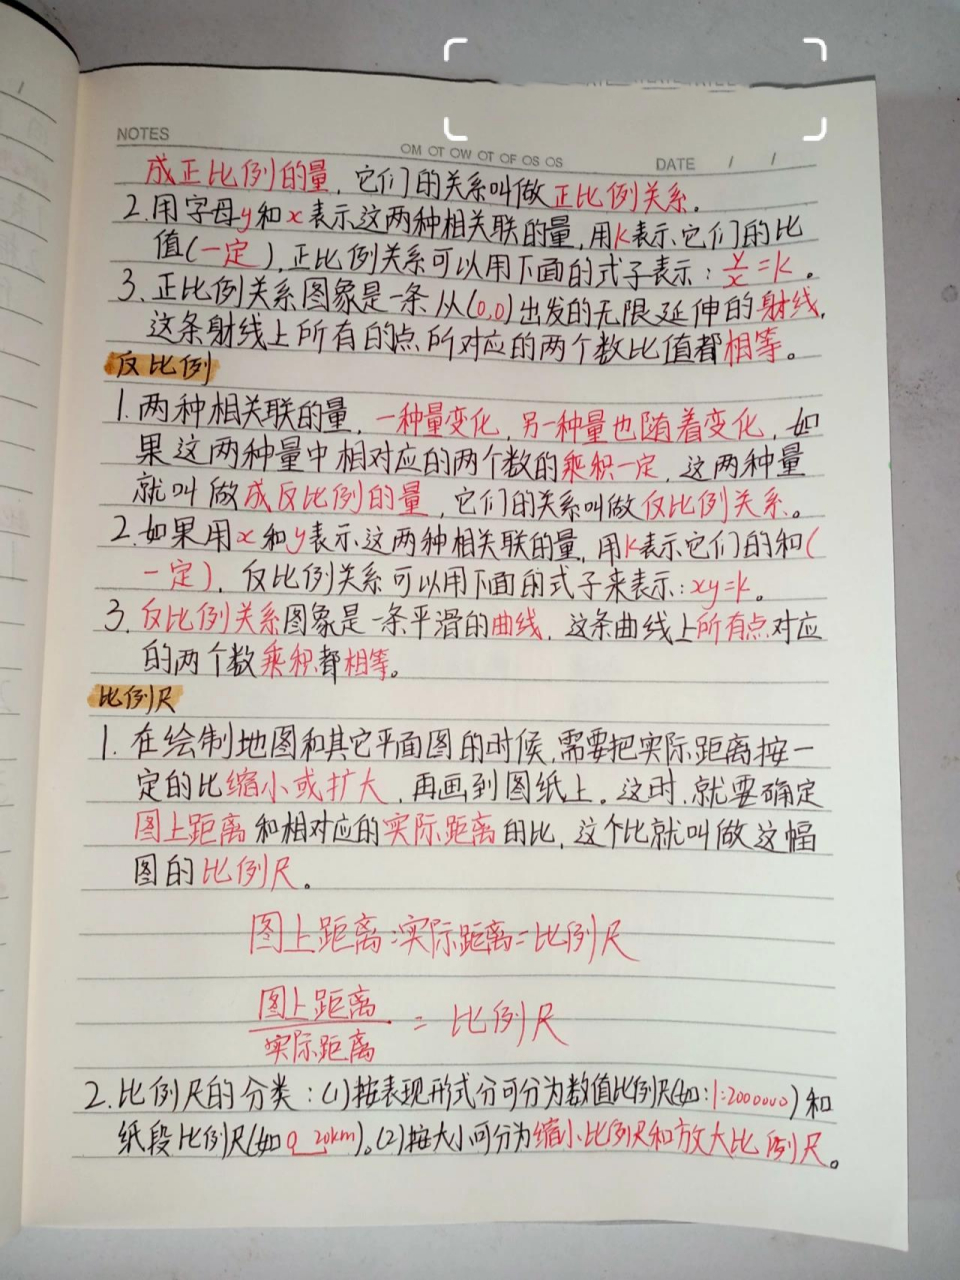 NOTES
OM OT OW OT OF OS OS
DATE / /
成正比例的量，它们的关系叫做正比例关系。
2.用字母y和x表示这两种相关联的量，用k表示它们的比
值(一定)，正比例关系可以用下面的式子表示：y/x=k。
3.正比例关系图象是一条从(0,0)出发的无限延伸的射线，
这条射线上所有的点所对应的两个数比值都相等。
反比例
1.两种相关联的量，一种量变化，另一种量也随着变化，如
果这两种量中相对应的两个数的乘积一定，这两种量
就叫做成反比例的量，它们的关系叫做反比例关系。
2.如果用x和y表示这两种相关联的量，用k表示它们的和(
一定)，反比例关系可以用下面的式子来表示：xy=k。
3.反比例关系图象是一条平滑的曲线，这条曲线上所有点对应
的两个数乘积都相等。
比例尺
1.在绘制地图和其它平面图的时候，需要把实际距离按一
定的比缩小或扩大，再画到图纸上。这时，就要确定
图上距离和相对应的实际距离的比，这个比就叫做这幅
图的比例尺。
图上距离：实际距离=比例尺
图上距离
实际距离 = 比例尺
2.比例尺的分类：(1)按表现形式分可分为数值比例尺(如：1:2000000)和
纸段比例尺(如0 20km)。(2)按大小可分为缩小比例尺和放大比例尺。